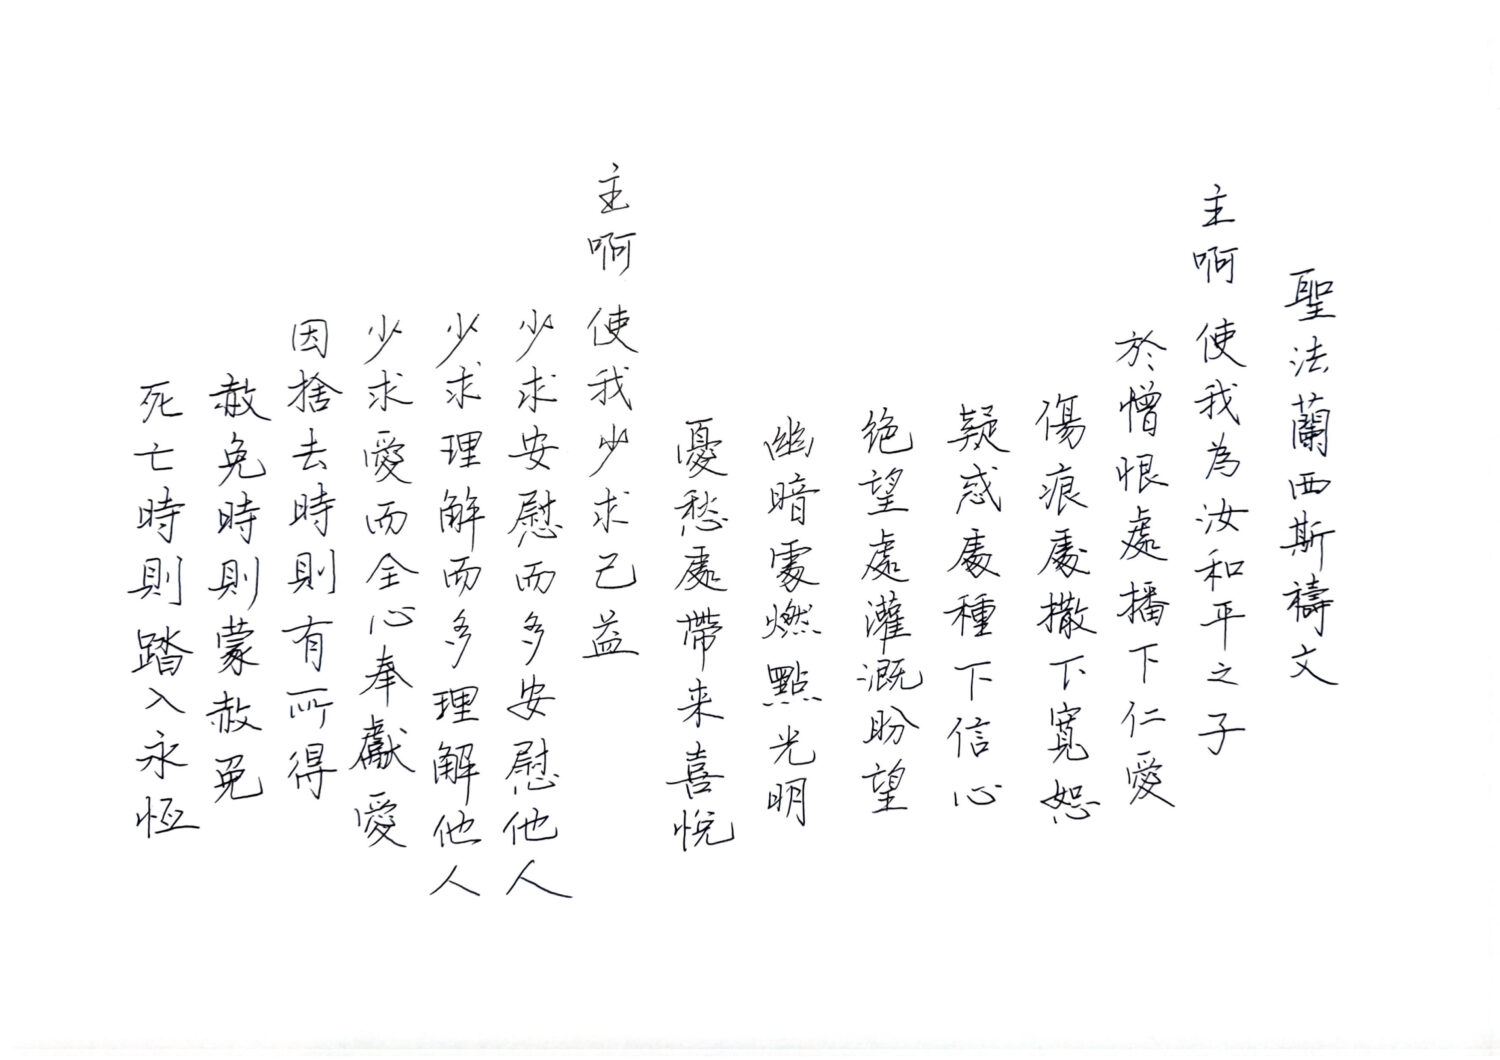 聖法蘭西斯禱文
主啊 使我為汝和平之子
於憎恨處播下仁愛
傷痕處撒下寬恕
疑惑處種下信心
絶望處灌溉盼望
幽暗處燃點光明
憂愁處帶来喜悅
主啊 使我少求己益
少求安慰而多安慰他人
少求理解而多理解他人
少求愛而全心奉獻愛
因捨去時則有所得
赦免時則蒙赦免
死亡時則踏入永恆